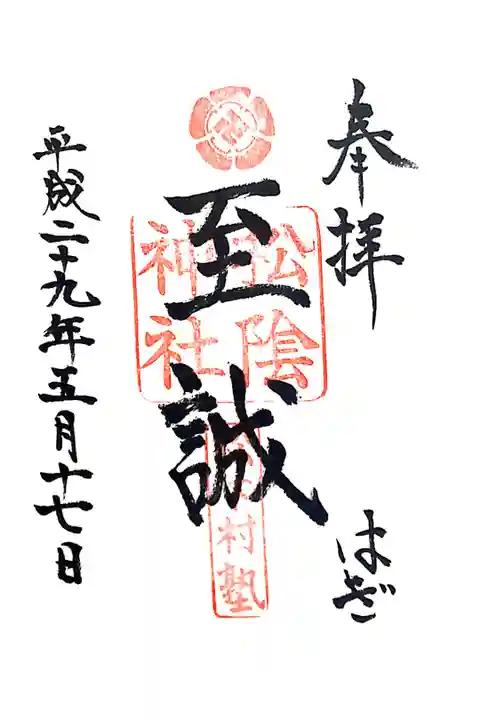 奉拝
はぎ
至誠
松陰
神社
村塾
平成二十九年五月十七日